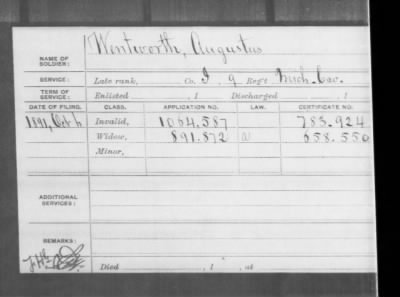 NAME OF SOLDIER: Wentworth, Augustus
SERVICE: Late rank, Co. I, 9 Reg't Mich. Cav.
TERM OF SERVICE: Enlisted , 1 Discharged , 1
DATE OF FILING. CLASS. APPLICATION NO. LAW. CERTIFICATE NO.
1891, Oct Invalid, 1064.587 783.924
Widow, 891.872 a 658.550
Minor,
ADDITIONAL SERVICES:
REMARKS:
Died , 1 , at